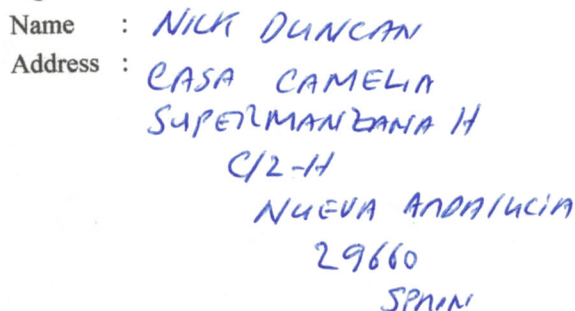 Name : NICK DUNCAN
Address : CASA CAMELIA
SUPERMANZANA H
C/2-H
NUEVA ANDALUCIA
29660
SPAIN